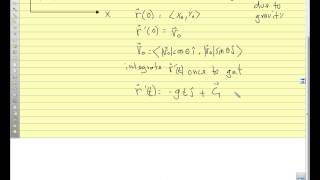 due to
gravity
x
r⃗(0) = <x₀, y₀>
r⃗'(0) = v⃗₀
v⃗₀ = <|v⃗₀|cosθ î, |v⃗₀|sinθ ĵ>
integrate r⃗"(t) once to get
r⃗'(t) = -gt ĵ + C⃗₁